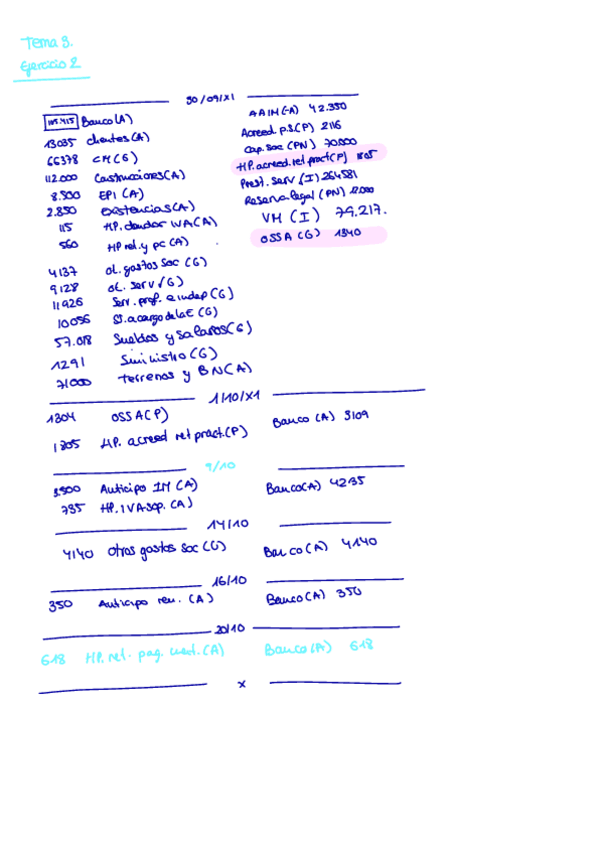 Tema 3.
Ejercicio 2
30/09/X1
105.415 Banco (A)
13035 clientes (A)
66378 CM (G)
112.000 Construcciones (A)
8.500 EPI (A)
2.850 existencias (A)
115 HP. deudor IVA (A)
560 HP ret. y pc (A)
4137 ot. gastos soc (G)
9128 ot. serv (G)
11926 Serv. prof. e indep (G)
10056 SS. a cargo de la E (G)
57.018 Sueldos y salarios (G)
1291 Suministro (G)
71000 terrenos y BN (A)
AAIM (-A) 42.350
Acreed. p.S (P) 2116
Cap. soc (PN) 70.000
HP. acreed. ret pract (P) 1805
Prest. serv (I) 264581
Reserva legal (PN) 12000
VM (I) 79.217.
OSSA (G) 1340
1/10/X1
1304 OSSA (P) Banco (A) 3109
1805 HP. acreed ret pract. (P)
9/10
3500 Anticipo IM (A) Banco (A) 4235
735 HP. IVA sop. (A)
14/10
4140 Otros gastos soc (G) Banco (A) 4140
16/10
350 Anticipo rem. (A) Banco (A) 350
20/10
618 HP. ret. pag. cuent. (A) Banco (A) 618
x